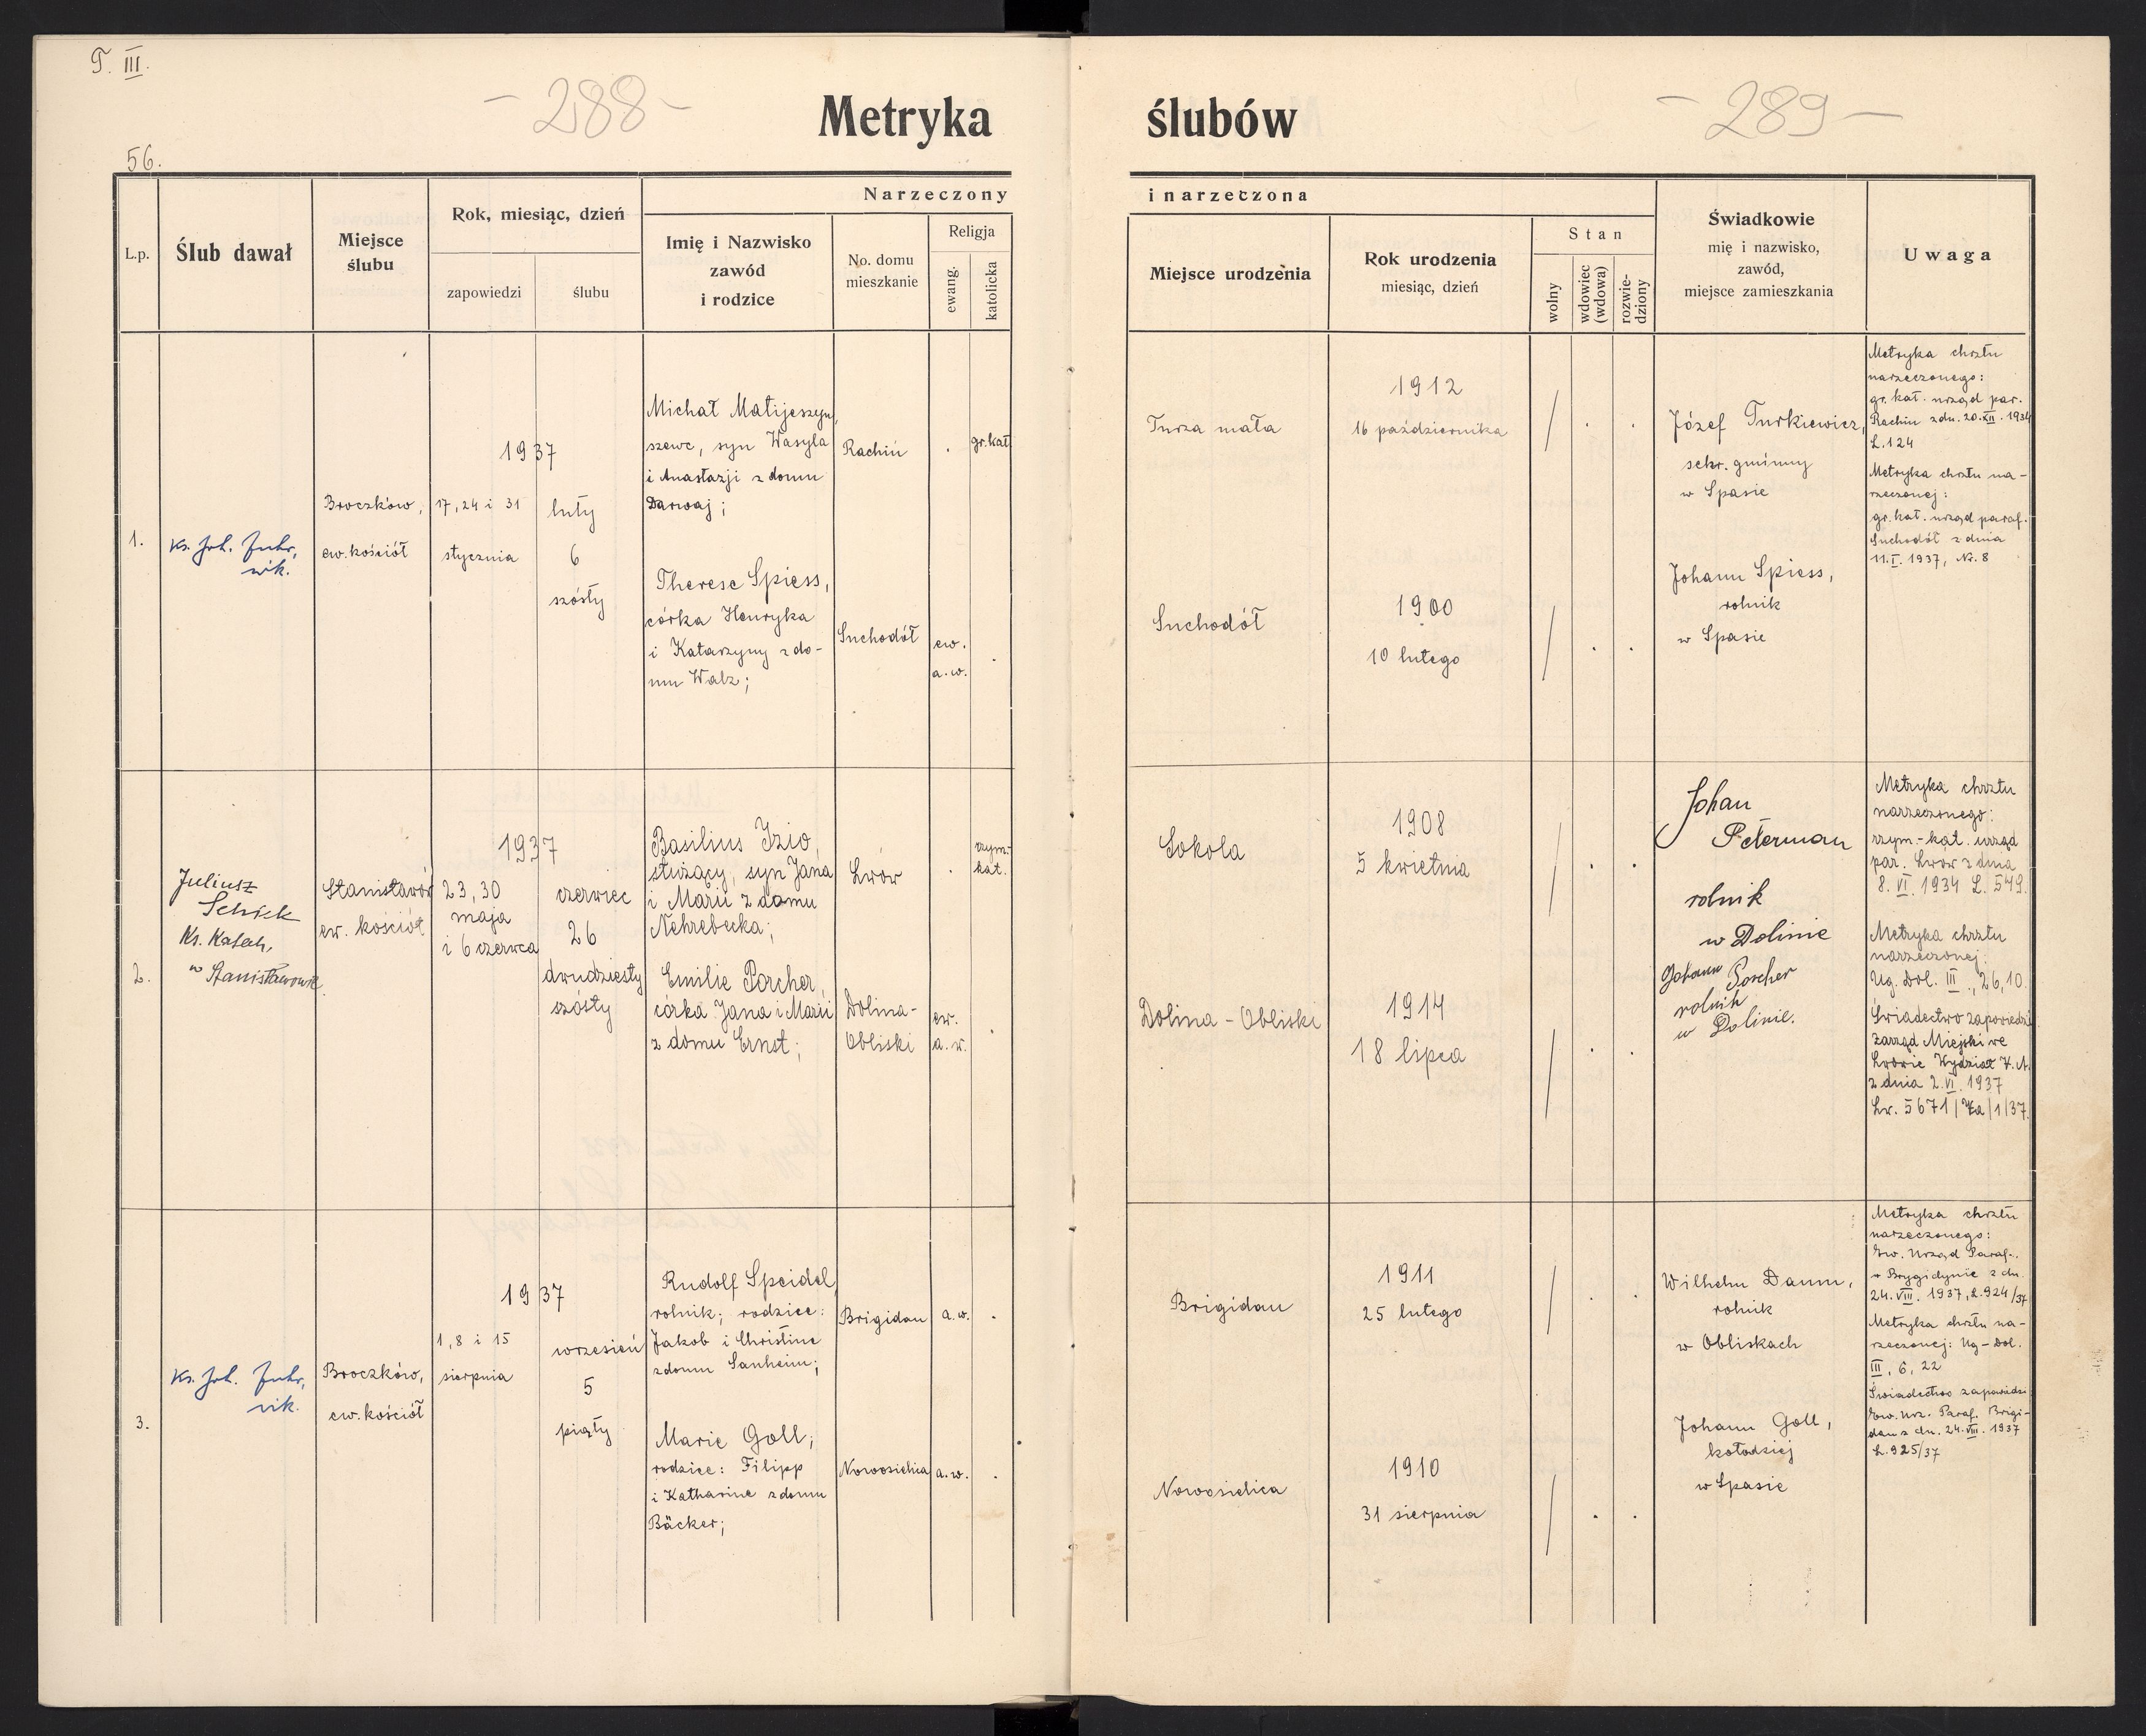 T. III.
- 288 -
Metryka
ślubów
- 289 -
56.
L.p.
Ślub dawał
Miejsce
ślubu
Rok, miesiąc, dzień
zapowiedzi
ślubu
Narzeczony
Imię i Nazwisko
zawód
i rodzice
No. domu
mieszkanie
Religja
ewang.
katolicka
i narzeczona
Miejsce urodzenia
Rok urodzenia
miesiąc, dzień
Stan
wolny
wdowiec
(wdowa)
rozwie-
dziony
Świadkowie
mię i nazwisko,
zawód,
miejsce zamieszkania
Uwaga
1.
Ks. Joh. Fuhr,
wik.
Broczków,
ew. kościół
1937
17, 24 i 31
stycznia
luty
6
szósty
Michał Matijeszyn,
szewc, syn Wasyla
i Anastazji z domu
Darwaj;
Rachiń
gr. kat.
Therese Spiess,
córka Henryka
i Katarzyny z do-
mu Walz;
Suchodół
ew.
a. w.
Turza mała
1912
16 października
Suchodół
1900
10 lutego
Józef Turkiewicz,
sekr. gminny
w Spasie
Johann Spiess,
rolnik
w Spasie
Metryka chrztu
narzeczonego:
gr. kat. urząd par.
Rachin z dn. 20. XII. 1934
L. 124
Metryka chrztu na-
rzeczonej:
gr. kat. urząd paraf.
Suchodół z dnia
11. I. 1937, Nr. 8
2.
Juliusz
Schick
Ks. Katech.
w Stanisławowie.
Stanisławów
ew. kościół
1937
23, 30
maja
i 6 czerwca
czerwiec
26
dwudziesty
szósty
Basilius Izio,
służący, syn Jana
i Marii z domu
Nehrebecka;
Lwów
rzym.-
kat.
Emilie Porcher,
córka Jana i Marii
z domu Ernst;
Dolina-
Obliski
ew.
a. w.
Sokola
1908
5 kwietnia
Dolina - Obliski
1914
18 lipca
Johan
Peterman
rolnik
w Dolinie
Johann Porcher
rolnik
w Dolinie.
Metryka chrztu
narzeczonego:
rzym.-kat. urząd
par. Lwów z dnia
8. VI. 1934 L. 549.
Metryka chrztu
narzeczonej:
Ug. Dol. III., 26, 10.
Świadectwo zapowiedzi
Zarząd Miejski we
Lwowie Wydział
z dnia 2. VI. 1937
3.
Ks. Joh. Fuhr,
vik.
Broczków,
ew. kościół
1937
1, 8 i 15
sierpnia
wrzesień
5
piąty
Rudolf Speidel,
rolnik; rodzice:
Jakob i Christine
z domu Sanheim;
Brigidau
a. w.
Marie Goll;
rodzice: Filipp
i Katharine z domu
Bäcker;
Nowosielica
a. w.
Brigidau
1911
25 lutego
Nowosielica
1910
31 sierpnia
Wilhelm Damm,
rolnik
w Obliskach
Johann Goll,
kołodziej
w Spasie
Metryka chrztu
narzeczonego:
Ew. Urząd Paraf.
w Brygidynie z dn.
24. VIII. 1937, L. 924/37
Metryka chrztu na-
rzeczonej: Ug-Dol.
III, 6, 22
Świadectwo zapowiedzi
Ew. Urz. Paraf. Brigi-
dau z dn. 24. VIII. 1937
L. 925/37